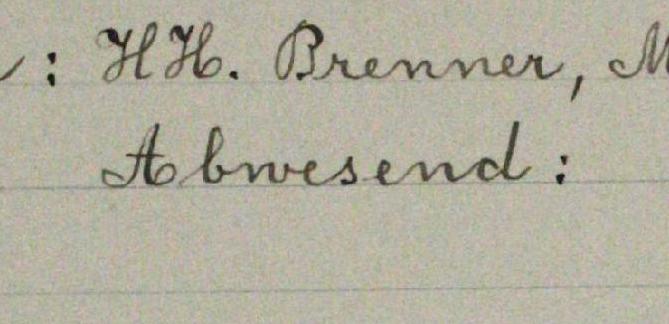 : HH. Brenner,
Abwesend: